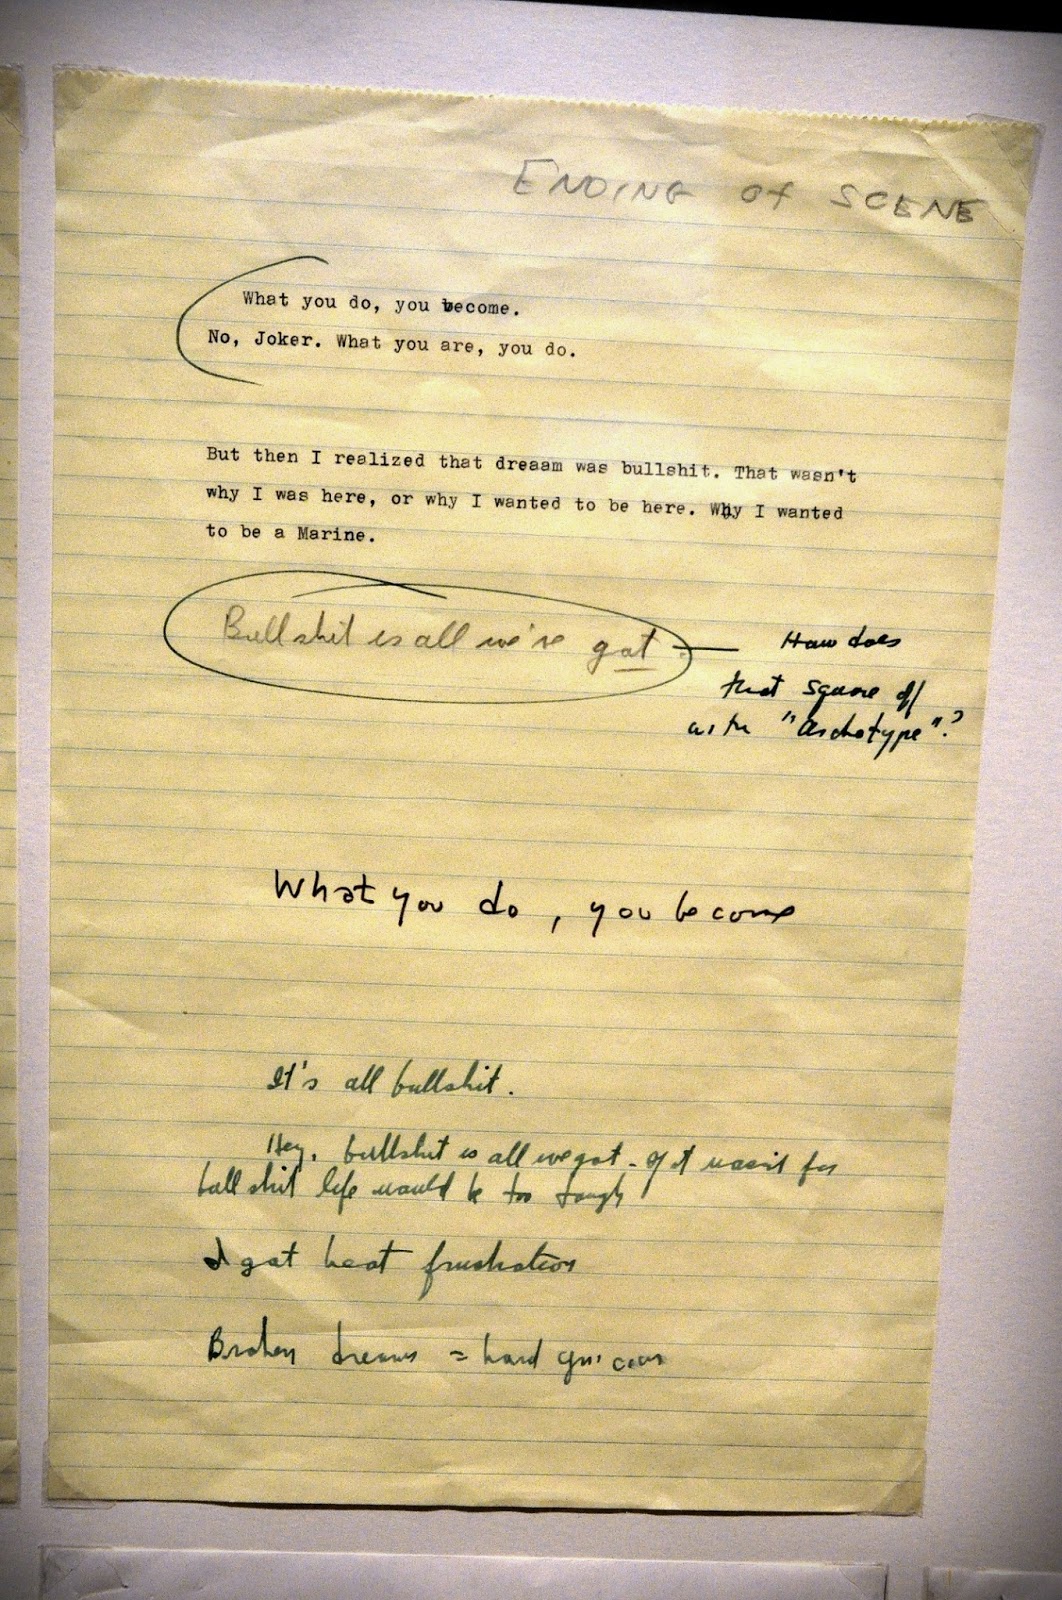 ENDING of SCENE
What you do, you become.
No, Joker. What you are, you do.
But then I realized that dreaam was bullshit. That wasn't
why I was here, or why I wanted to be here. Why I wanted
to be a Marine.
Bullshit is all we've got.
How does
that square off
with "Archetype"?
What you do, you become
It's all bullshit.
Hey, bullshit is all we got. If it wasn't for
bullshit life would be too tough
I got heat frustration
Broken dreams = hard